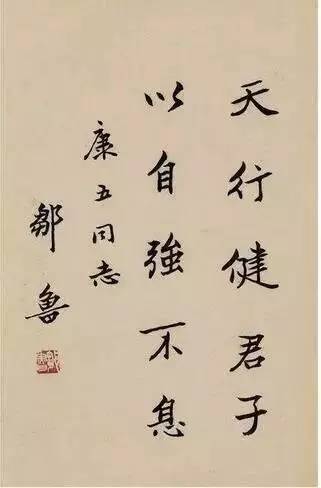 天行健君子
以自強不息
廉五同志
鄒魯